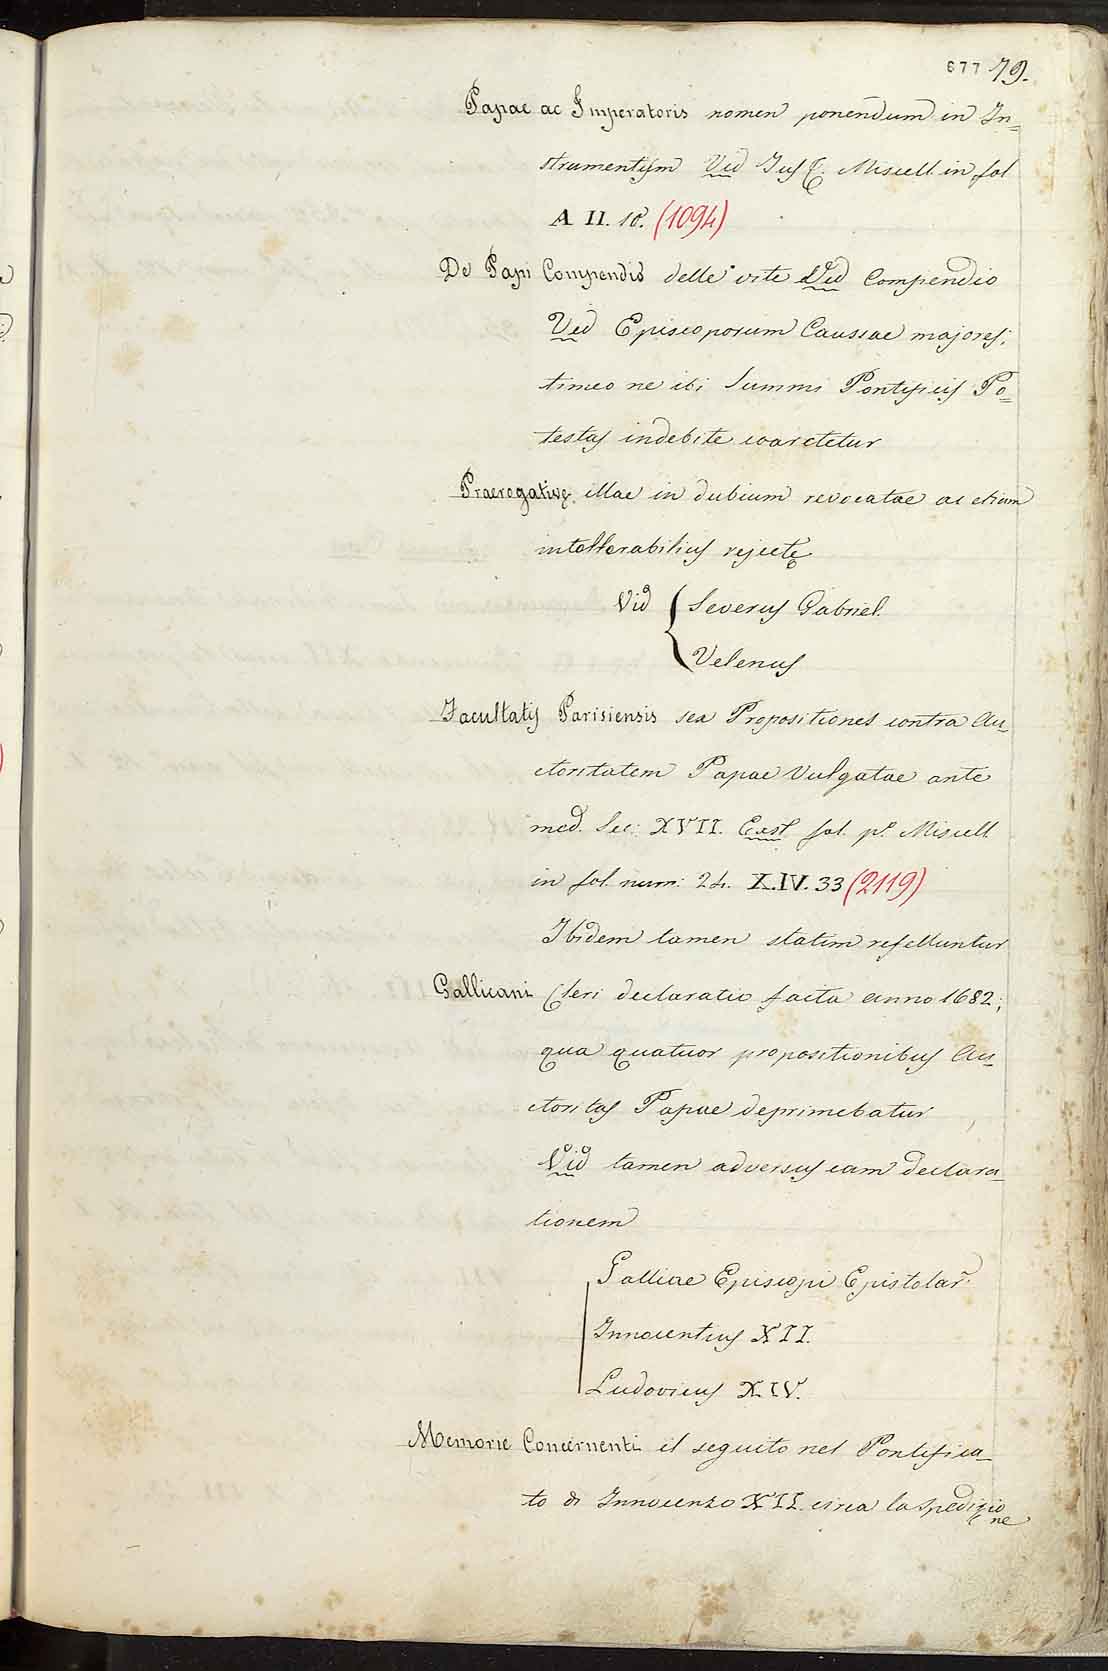 677 79.
Papae ac Imperatoris nomen ponendum in In=
strumentis Vid Jus C. Miscell. in fol
A II. 18. (1094)
De Papi Compendio delle vite Ved Compendio
Ved Episcoporum Caussae majores;
timeo ne ibi Summi Pontificis Po=
testas indebite coarctetur
Praerogative illae in dubium revocatae ac etiam
intollerabilius rejecte
Vid { Severus Gabriel.
Velenus
Facultatis Parisiensis sex Propositiones contra Au_
ctoritatem Papae Vulgatae ante
med. Sec: XVII. Exst fol. p.º Miscell.
in fol. num: 24. X.IV. 33 (2119)
Ibidem tamen statim refelluntur
Gallicani Cleri declaratio facta anno 1682;
qua quatuor propositionibus Au_
ctoritas Papae deprimebatur
Vid tamen adversus eam declara_
tionem
Galliae Episcopi Epistolar.
Innocentius XII.
Ludovicus XIV.
Memorie Concernenti il seguito nel Pontifica_
to di Innocenzo XII. circa la Spedizio
ne